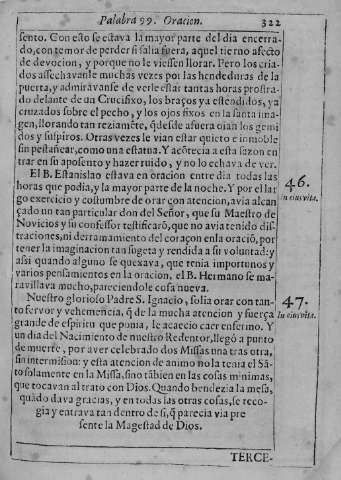 Palabra 99. Oracion. 322
sento. Con esto se estava la mayor parte del dia encerra-
do, con temor de perder si salia fuera, aquel tierno afecto
de devocion, y porque no le viessen llorar. Pero los cria-
dos assechavanle muchas vezes por las hendeduras de la
puerta, y admiravanse de verle estar tantas horas prostra-
do delante de un Crucifixo, los braços ya estendidos, ya
cruzados sobre el pecho, y los ojos fixos en la santa ima-
gen, llorando tan reziamẽte, q̃ desde afuera oian los gemi
dos y suspiros. Otras vezes le vian estar quieto e inmoble
sin pestañear, como una estatua. Y acõtecia a esta sazon en
trar en su aposento y hazer ruido, y no lo echava de ver.
El B. Estanislao estava en oracion entre dia todas las
horas que podia, y la mayor parte de la noche. Y por el lar
go exercicio y costumbre de orar con atencion, avia alcan
çado un tan particular don del Señor, que su Maestro de
Novicios y su confessor testificarõ, que no avia tenido dis-
tracciones, ni derramamiento del coraçon en la oraciõ, por
tener la imaginacion tan sugeta y rendida a su voluntad: y
assi quando alguno se quexava, que tenia importunos y
varios pensamientos en la oracion, el B. Hermano se ma-
ravillava mucho, pareciendole cosa nueva.
46.
In eius vita.
Nuestro glorioso Padre S. Ignacio, solia orar con tan-
to fervor y vehemẽcia, q̃ de la mucha atencion y fuerça
grande de espiritu que ponia, le acaecio caer enfermo. Y
un dia del Nacimiento de nuestro Redentor, llegò a punto
de muerte, por aver celebrado dos Missas una tras otra,
sin intermision: y esta atencion de animo no la tenia el Sã-
to solamente en la Missa, sino tãbien en las cosas minimas,
que tocavan al trato con Dios. Quando bendezia la mesa,
quãdo dava gracias, y en todas las otras cosas, se reco-
gia y entrava tan dentro de si, q̃ parecia via pre
sente la Magestad de Dios.
47.
In eius vita.
TERCE-